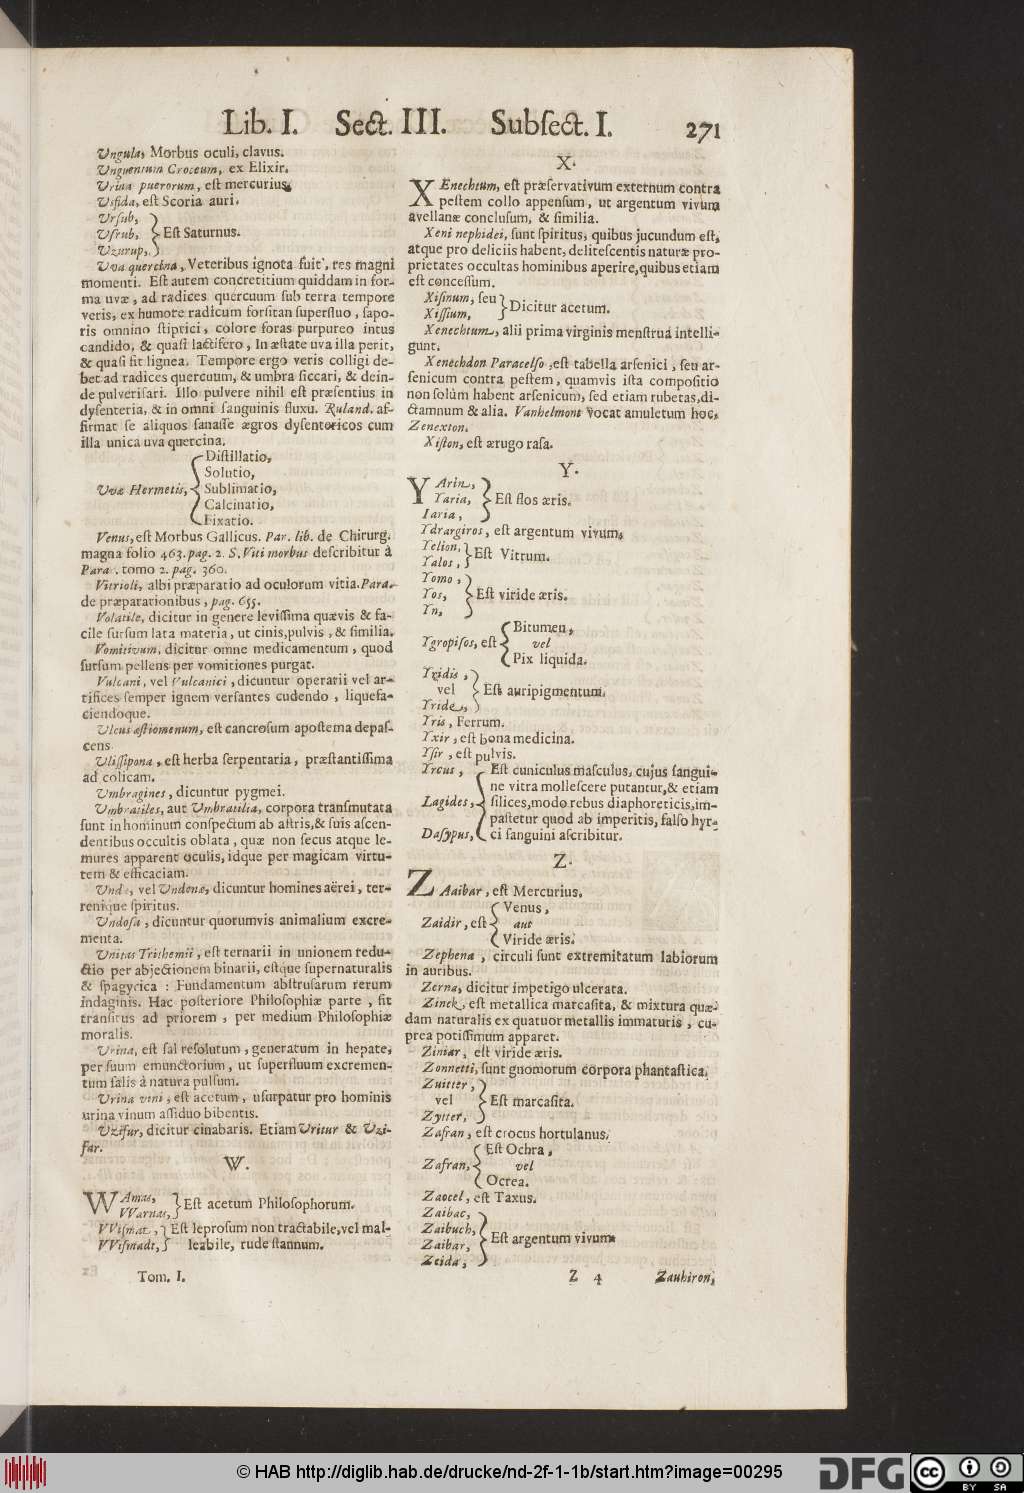 Lib. I. Sect. III. Subſect. I. 271
Ungula, Morbus oculi, clavus.
Unguentum Croceum, ex Elixir.
Urina puerorum, eſt mercurius.
Usfida, eſt Scoria auri.
Urſub,
Uſrub, Eſt Saturnus.
Uzurup,
Uva quercina, Veteribus ignota fuit, res magni
momenti. Eſt autem concretitium quiddam in for-
ma uvæ, ad radices quercuum ſub terra tempore
veris, ex humore radicum forſitan ſuperfluo, ſapo-
ris omnino ſtiptici, colore foras purpureo intus
candido, & quaſi lactifero, In æſtate uva illa perit,
& quaſi fit lignea. Tempore ergo veris colligi de-
bet ad radices quercuum, & umbra ſiccari, & dein-
de pulveriſari. Illo pulvere nihil eſt præſentius in
dyſenteria, & in omni ſanguinis fluxu. Ruland. af-
firmat ſe aliquos ſanaſſe ægros dyſentericos cum
illa unica uva quercina.
Diſtillatio,
Solutio,
Uvæ Hermetis, Sublimatio,
Calcinatio,
Fixatio.
Venus, eſt Morbus Gallicus. Par. lib. de Chirurg.
magna folio 463. pag. 2. S. Viti morbus deſcribitur à
Para. tomo 2. pag. 360.
Vitrioli, albi præparatio ad oculorum vitia. Para.
de præparationibus, pag. 655.
Volatile, dicitur in genere leviſſima quævis & fa-
cile ſurſum lata materia, ut cinis, pulvis, & ſimilia.
Vomitivum, dicitur omne medicamentum, quod
ſurſum pellens per vomitiones purgat.
Vulcani, vel Vulcanici, dicuntur operarii vel ar-
tifices ſemper ignem verſantes cudendo, liquefa-
ciendoque.
Ulcus æſtiomenum, eſt cancroſum apoſtema depaſ-
cens.
Uliſſipona, eſt herba ſerpentaria, præſtantiſſima
ad colicam.
Umbragines, dicuntur pygmei.
Umbratiles, aut Umbratilia, corpora transmutata
ſunt in hominum conſpectum ab aſtris, & ſuis aſcen-
dentibus occultis oblata, quæ non ſecus atque le-
mures apparent oculis, idque per magicam virtu-
tem & efficaciam.
Undæ, vel Undenæ, dicuntur homines aërei, ter-
renique ſpiritus.
Undoſa, dicuntur quorumvis animalium excre-
menta.
Unitas Trithemii, eſt ternarii in unionem redu-
ctio per abjectionem binarii, eſtque ſupernaturalis
& ſpagyrica: Fundamentum abſtruſarum rerum
indaginis. Hac poſteriore Philoſophiæ parte, fit
tranſitus ad priorem, per medium Philoſophiæ
moralis.
Urina, eſt ſal reſolutum, generatum in hepate,
per ſuum emunctorium, ut ſuperfluum excremen-
tum ſalis à natura pulſum.
Urina vini, eſt acetum, uſurpatur pro hominis
urina vinum aſſiduo bibentis.
Uzifur, dicitur cinabaris. Etiam Uritur & Uzi-
far.
W.
WAmas,
VVarnas, Eſt acetum Philoſophorum.
VViſmat, Eſt leproſum non tractabile, vel mal-
VViſmadt, leabile, rude ſtannum.
Tom. I.
X.
XEnechtum, eſt præſervativum externum contra
peſtem collo appenſum, ut argentum vivum
avellanæ concluſum, & ſimilia.
Xeni nephidei, ſunt ſpiritus, quibus jucundum eſt,
atque pro deliciis habent, deliteſcentis naturæ pro-
prietates occultas hominibus aperire, quibus etiam
eſt conceſſum.
Xiſinum, ſeu
Xiſſium, Dicitur acetum.
Xenechtum, alii prima virginis menſtrua intelli-
gunt.
Xenechdon Paracelſo, eſt tabella arſenici, ſeu ar-
ſenicum contra peſtem, quamvis iſta compoſitio
non ſolùm habent arſenicum, ſed etiam rubetas, di-
ctamnum & alia. Vanhelmont vocat amuletum hoc,
Zenexton.
Xiſton, eſt ærugo raſa.
Y.
YArin,
Yaria, Eſt flos æris.
Iaria,
Ydrargiros, eſt argentum vivum.
Yelion,
Yalos, Eſt Vitrum.
Yomo,
Yos, Eſt viride æris.
Yn,
Bitumen,
Ygropiſos, eſt vel
Pix liquida.
Yridis,
vel Eſt auripigmentum.
Yride,
Yris, Ferrum.
Yxir, eſt bona medicina.
Yſir, eſt pulvis.
Yrcus, Eſt cuniculus maſculus, cujus ſangui-
ne vitra molleſcere putantur, & etiam
Lagides, ſilices, modo rebus diaphoreticis, im-
paſtetur quod ab imperitis, falſo hyr-
Daſypus, ci ſanguini aſcribitur.
Z.
ZAaibar, eſt Mercurius.
Venus,
Zaidir, eſt aut
Viride æris.
Zephena, circuli ſunt extremitatum labiorum
in auribus.
Zerna, dicitur impetigo ulcerata.
Zinck, eſt metallica marcaſita, & mixtura quæ-
dam naturalis ex quatuor metallis immaturis, cu-
prea potiſſimum apparet.
Ziniar, eſt viride æris.
Zonnetti, ſunt gnomorum corpora phantaſtica.
Zuitter,
vel Eſt marcaſita.
Zytter,
Zafran, eſt crocus hortulanus.
Eſt Ochra,
Zafran, vel
Ocrea.
Zaocel, eſt Taxus.
Zaibac,
Zaibuch,
Zaibar, Eſt argentum vivum.
Zeida,
Z 4 Zauhiron,
© HAB http://diglib.hab.de/drucke/nd-2f-1-1b/start.htm?image=00295
DFG
cc BY SA